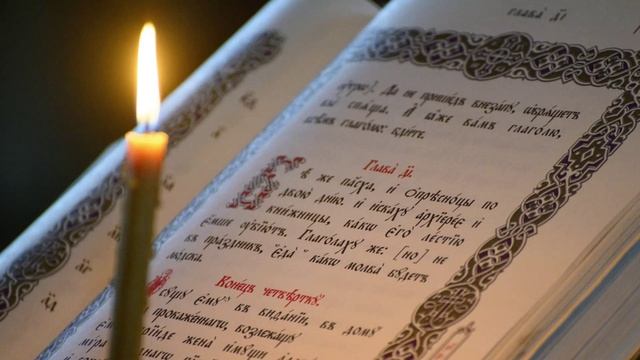 Глава д҃і
ѹтро]. Да не пришедъ внезапу, ѡбрѧщетъ
вы спѧща. И ꙗже вамъ глаголю,
всѣмъ глаголю: бдите.
Глава д҃і.
Бѣ же пасха, и ѡпрѣсноцы по
двою днїю. и искаху архїерее и
книжницы, какѡ его лестїю
емше ѹбїютъ. Глаголаху же: [но] не
въ праздникъ, еда какѡ молва будетъ
людска.
Конецъ четвертку.
сущу ему въ виѳанїи, въ дому
прокаженнаго, возлежащу
прїиде жена имущи
мѵра